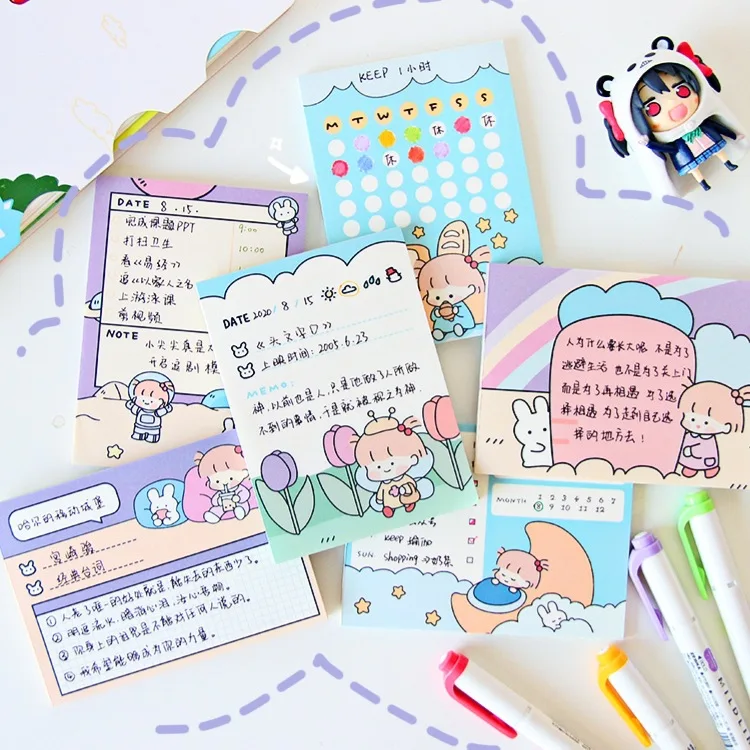 KEEP 1小时
M T W T F S S
休 休
休 休
DATE 8.15.
完成课题PPT 9:00
打扫卫生 10:00
看《易经》
追《以家人之名》
上游泳课
剪视频
NOTE 小尖尖真是不
开启追剧模
DATE 2020/8/15
《头文字D》
上映时间:2005.6.23
MEMO:
神,以前也是人,只是他做了人所做
不到的事情,于是就被视之为神.
人为什么要长大呢 不是为了
逃避生活 也不是为了关上门
而是为了再相遇 为了选
择相遇 为了走到自己选
择的地方去!
哈尔的移动城堡
宫崎骏
经典台词
① 人老了唯一的好处就是能失去的东西少了。
④ 我希望能够成为你的力量。
MONTH 1 2 3 4 5 6 7
8 9 10 11 12
KEEP 瑜伽
SUN. shopping